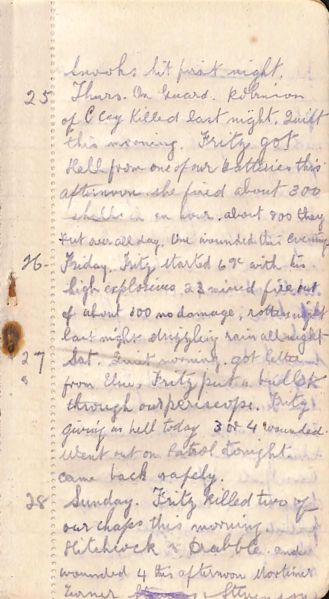 Snooks hit first night.
25 Thurs. On Guard. Robinson
of C Coy Killed last night. Quift
this morning. Fritz got
Hell from one of our batteries this
afternoon. she fired about 300
shells in an hour. about 800 they
put over all day. One wounded this evening
26 Friday. Fritz started with his
high explosives fire out
of about 100 no damage, rotten night
last night drizzling rain all night
27 Sat. Quiet morning, got letter
from Elsie. Fritz put a bullet
through our periscope. Fritz
giving us hell today 3 or 4 wounded.
Went out on Patrol tonight
came back safely.
28 Sunday. Fritz killed two of
our chaps this morning
Hitchcock & Drabble. and
wounded 4 this afternoon Mortimer
Turner Stevenson